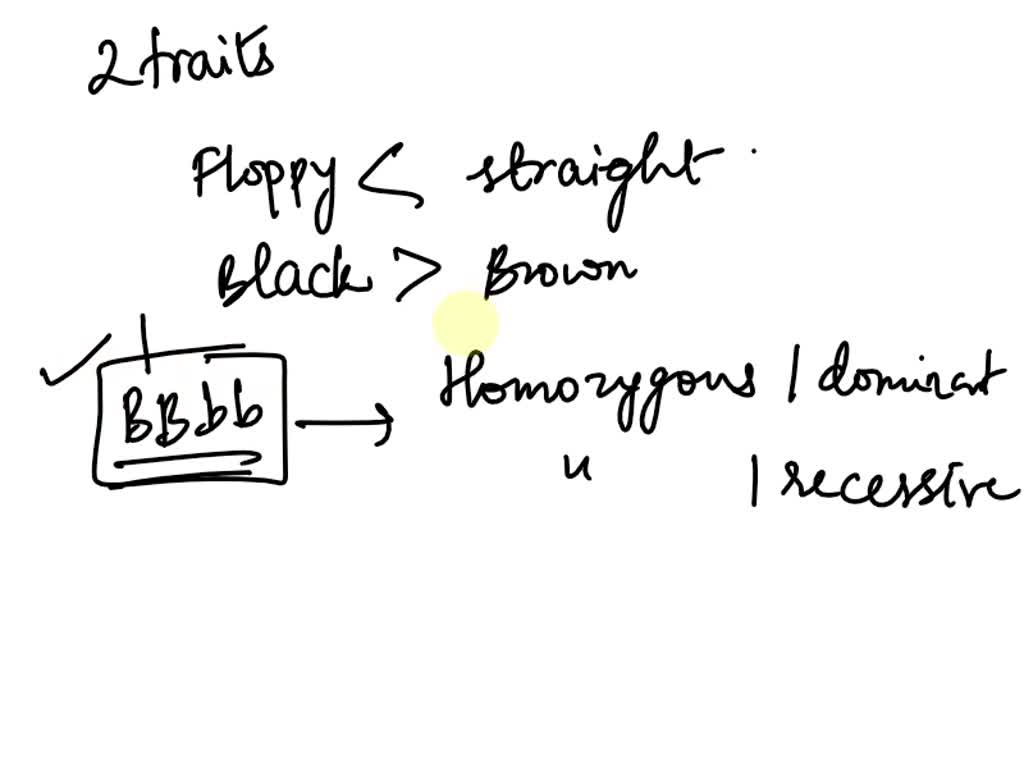 2 traits
Floppy < straight
Black > Brown
BBbb → Homozygous / dominant
" / recessive